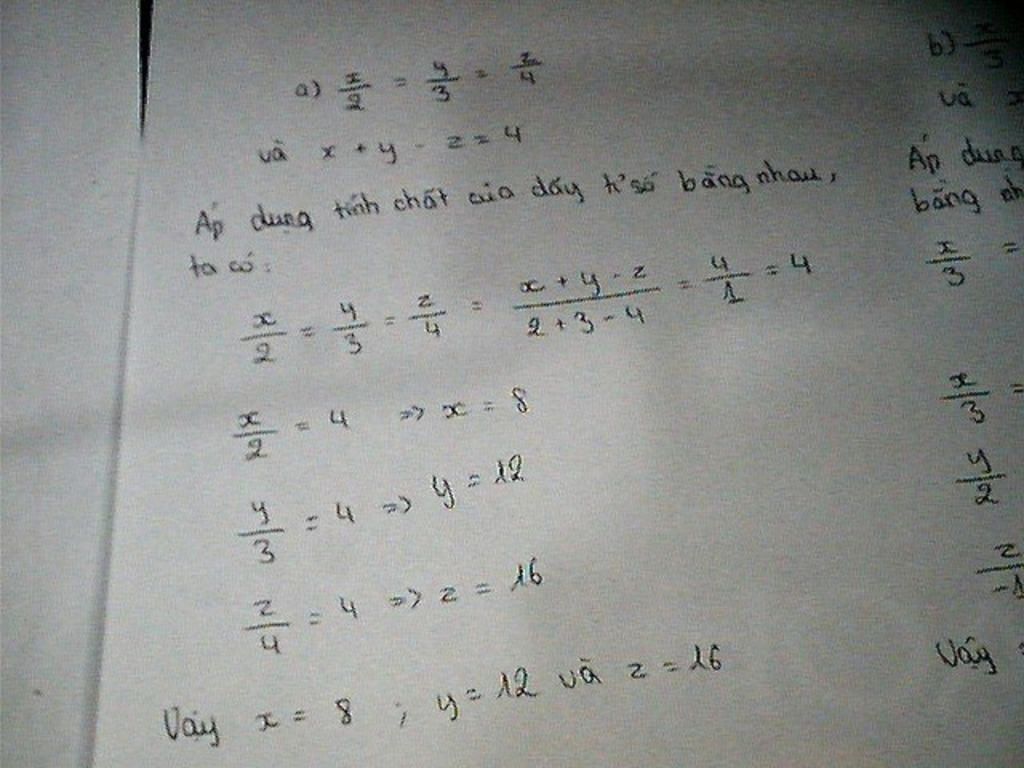 a) x/2 = y/3 = z/4
và x + y - z = 4
Áp dụng tính chất của dãy tỉ số bằng nhau,
ta có:
x/2 = y/3 = z/4 = (x + y - z)/(2 + 3 - 4) = 4/1 = 4
x/2 = 4 => x = 8
y/3 = 4 => y = 12
z/4 = 4 => z = 16
Vậy x = 8 ; y = 12 và z = 16
b) x/3
và x
Áp dụng
bằng
x/3 =
x/3 =
y/2
z/-1
Vậy